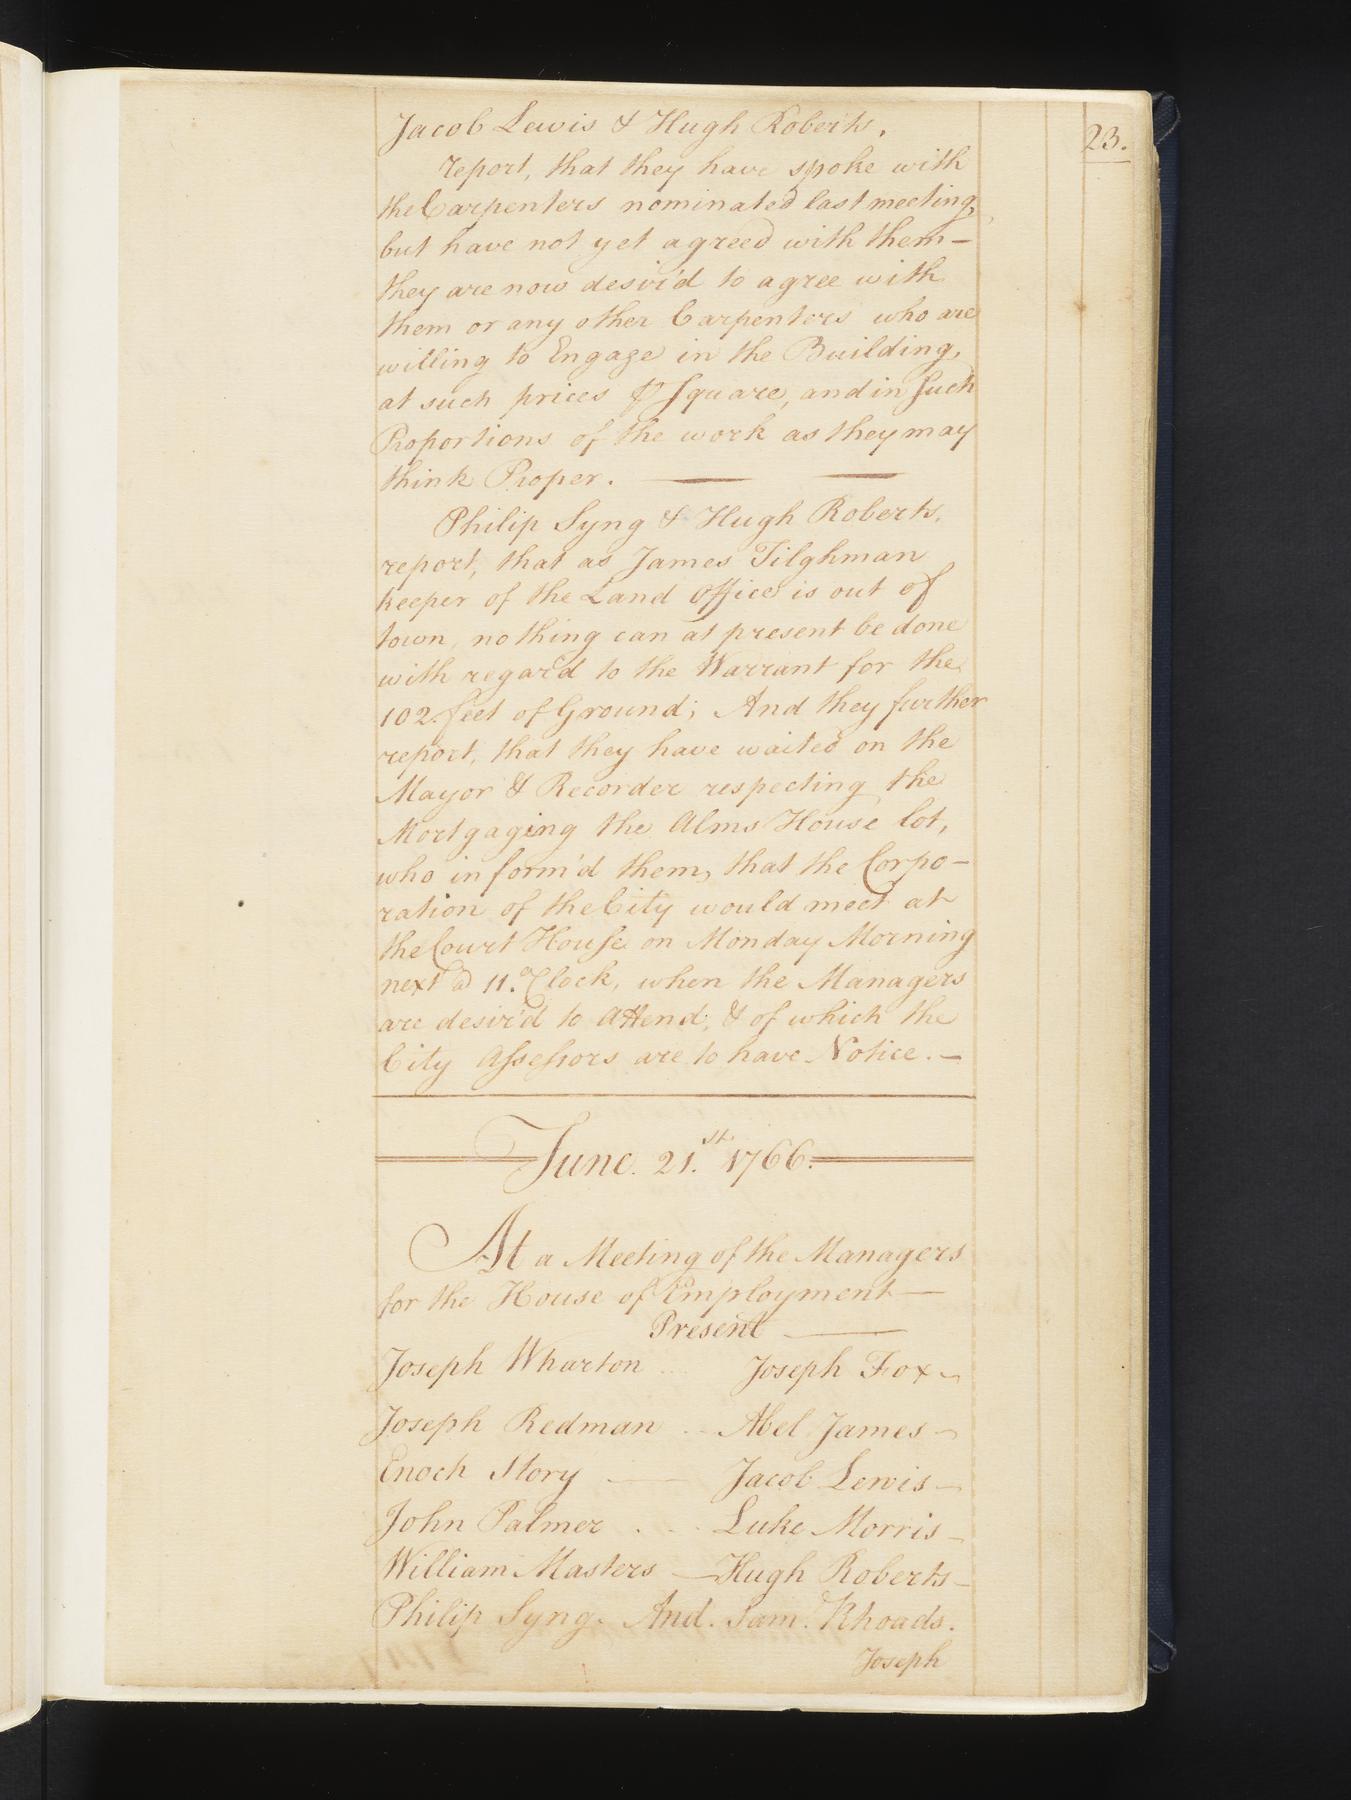 23.
Jacob Lewis & Hugh Roberts,
report, that they have spoke with
the Carpenters nominated last meeting,
but have not yet agreed with them —
they are now desir'd to agree with
them or any other Carpenters who are
willing to Engage in the Building,
at such prices ⅌ Square, and in Such
Proportions of the work as they may
think Proper. — —
Philip Syng & Hugh Roberts,
report, that as James Tilghman
keeper of the Land Office is out of
town, nothing can at present be done
with regard to the Warrant for the
102 feet of Ground; And they further
report, that they have waited on the
Mayor & Recorder respecting the
Mortgaging the Alms House lot,
who inform'd them, that the Corpo-
ration of the City would meet at
the Court House on Monday Morning
next @ 11. oClock, when the Managers
are desir'd to Attend; & of which the
City Assessors are to have Notice. —
June. 21.st 1766.
At a Meeting of the Managers
for the House of Employment —
Present —
Joseph Wharton .... Joseph Fox ~
Joseph Redman ... Abel James ~
Enoch Story — Jacob Lewis ~
John Palmer . - . Luke Morris —
William Masters — Hugh Roberts —
Philip Syng. And. Sam. Rhoads.
Joseph